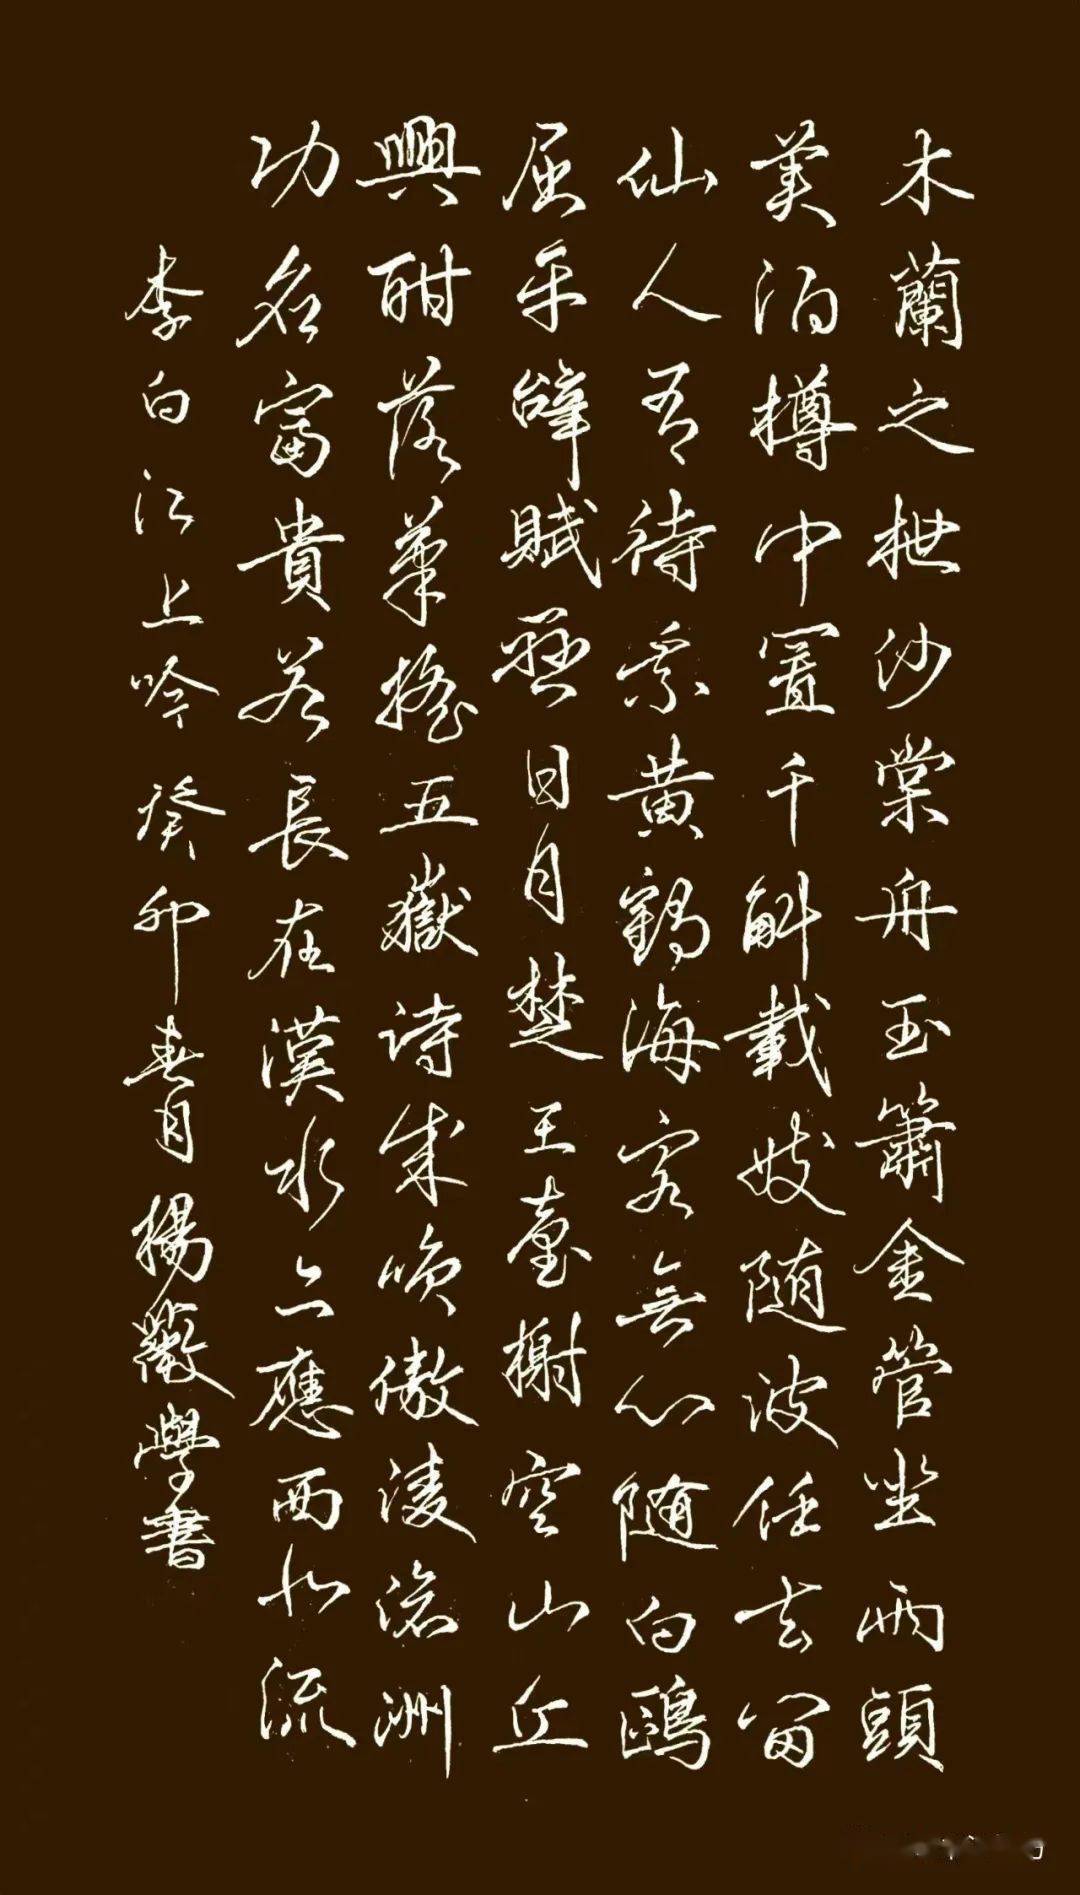 木蘭之枻沙棠舟玉簫金管坐兩頭
美酒樽中置千斛載妓随波任去留
仙人有待乘黄鶴海客無心随白鷗
屈平辭賦懸日月楚王臺榭空山丘
興酣落筆摇五嶽詩成咲傲淩滄洲
功名富貴若長在漢水亦應西北流
李白江上吟癸卯春月楊薇學書